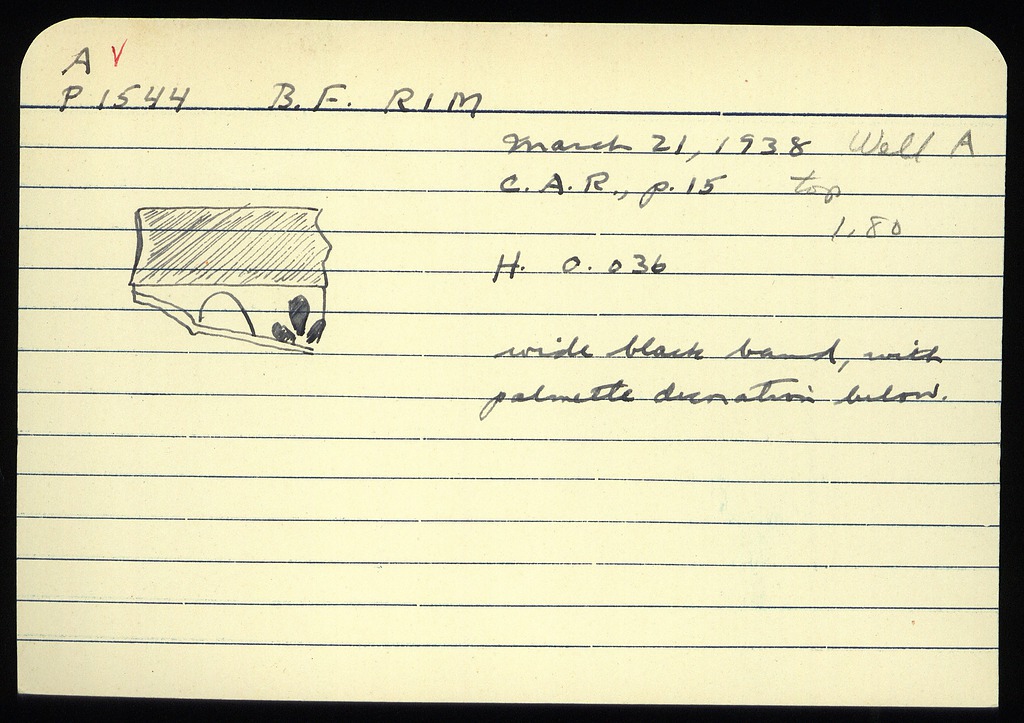 A V
P 1544 B.F. RIM
March 21, 1938 Well A
C.A.R., p.15 top
1.80
H. 0.036
wide black band, with
palmette decoration below.